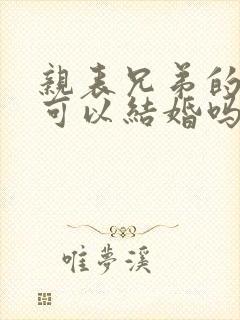 親表兄弟的
可以結婚嗎
唯夢溪